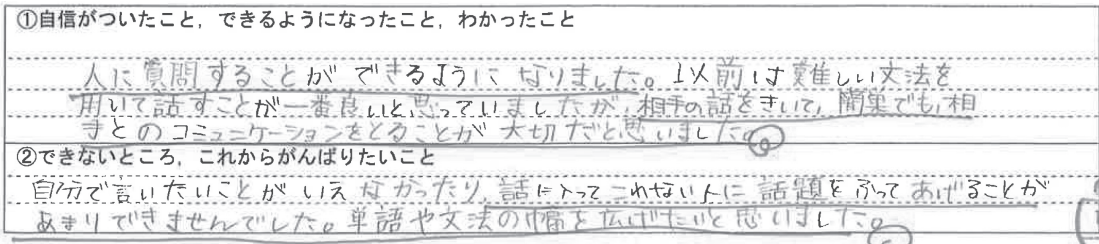 ①自信がついたこと，できるようになったこと，わかったこと
人に質問することができるようになりました。以前は難しい文法を
用いて話すことが一番良いと思っていましたが，相手の話をきいて，簡単でも，相
手とのコミュニケーションをとることが大切だと思いました。
②できないところ，これからがんばりたいこと
自分で言いたいことがいえなかったり，話に入ってこれない人に話題をふってあげることが
あまりできませんでした。単語や文法の幅を広げたいと思いました。